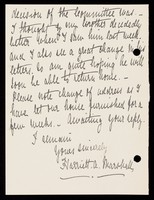 decision of the Committee was -
I thought my brother decidedly
better when I saw him last week,
and I also see a great change in his
letters. I am quite hoping he will
soon be able to return home. -
Please note change of address as I
have let our house furnished for a
few weeks. - Awaiting your reply
I remain
Yours sincerely
Harriett A. Marshall